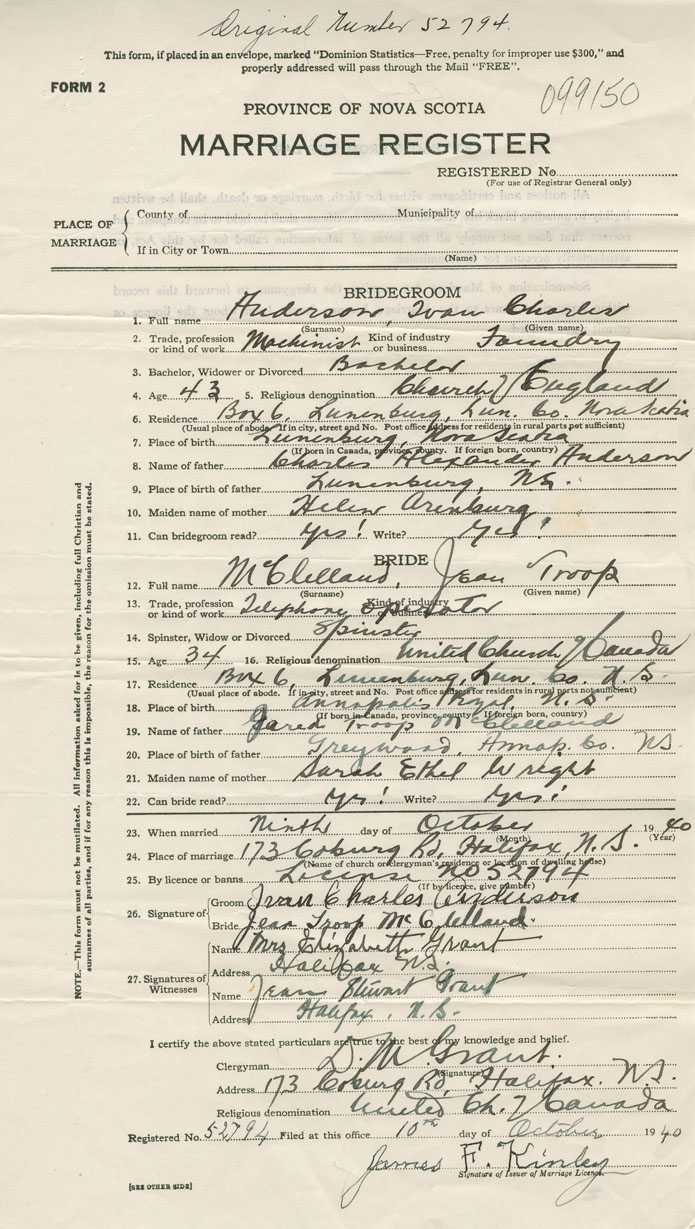 Original Number 52794.
This form, if placed in an envelope, marked "Dominion Statistics—Free, penalty for improper use $300," and
properly addressed will pass through the Mail "FREE".
FORM 2
099150
PROVINCE OF NOVA SCOTIA
MARRIAGE REGISTER
REGISTERED No.
(For use of Registrar General only)
PLACE OF MARRIAGE
County of Municipality of
If in City or Town
(Name)
BRIDEGROOM
1. Full name Anderson, Ivan Charles
(Surname) (Given name)
2. Trade, profession or kind of work Machinist Kind of industry or business Foundry
3. Bachelor, Widower or Divorced Bachelor
4. Age 43 5. Religious denomination Church of England
6. Residence Box 6, Lunenburg, Lun. Co. Nova Scotia
(Usual place of abode. If in city, street and No. Post office address for residents in rural parts not sufficient)
7. Place of birth Lunenburg, Nova Scotia
(If born in Canada, province, county. If foreign born, country)
8. Name of father Charles Alexander Anderson
9. Place of birth of father Lunenburg, N.S.
10. Maiden name of mother Helen Arenburg
11. Can bridegroom read? Yes! Write? Yes!
BRIDE
12. Full name McClelland, Jean Troop
(Surname) (Given name)
13. Trade, profession or kind of work Telephone Operator Kind of industry or business
14. Spinster, Widow or Divorced Spinster
15. Age 34 16. Religious denomination United Church of Canada
17. Residence Box 6, Lunenburg, Lun. Co. N.S.
(Usual place of abode. If in city, street and No. Post office address for residents in rural parts not sufficient)
18. Place of birth Annapolis Royal, N.S.
(If born in Canada, province, county. If foreign born, country)
19. Name of father Jared Troop McClelland
20. Place of birth of father Greywood, Annap. Co. N.S.
21. Maiden name of mother Sarah Ethel Wright
22. Can bride read? Yes! Write? Yes!
23. When married Ninth day of October 1940
(Month) (Year)
24. Place of marriage 173 Coburg Rd, Halifax, N.S.
(Name of church or clergyman's residence or location of dwelling house)
25. By licence or banns License No 52794
(If by licence, give number)
26. Signature of
Groom Ivan Charles Anderson
Bride Jean Troop McClelland.
27. Signatures of Witnesses
Name Mrs Elizabeth Grant
Address Halifax N.S.
Name Jean Stewart Grant
Address Halifax, N.S.
I certify the above stated particulars are true to the best of my knowledge and belief.
Clergyman D. M. Grant.
(Signature)
Address 173 Coburg Rd, Halifax. N.S.
Religious denomination United Ch. of Canada
Registered No. 52794 Filed at this office 10th day of October 1940
James F. Kinley
Signature of Issuer of Marriage Licence
[SEE OTHER SIDE]
NOTE.—This form must not be mutilated. All information asked for is to be given, including full Christian and
surnames of all parties, and if for any reason this is impossible, the reason for the omission must be stated.